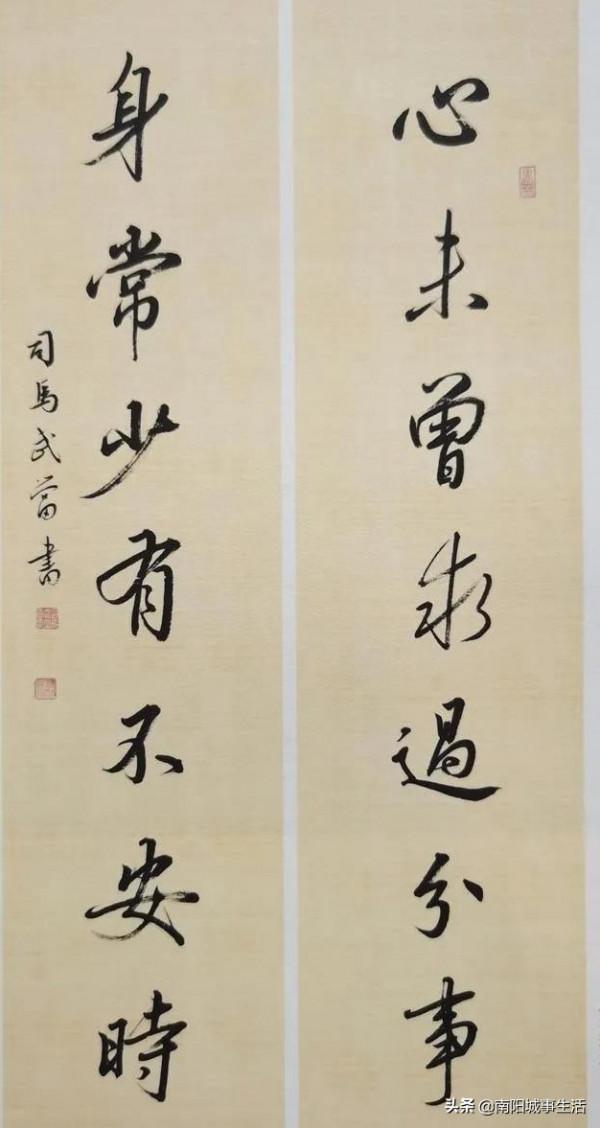 心未曾求過分事
身常少有不安時
司馬武當書
头条 @南阳城事生活